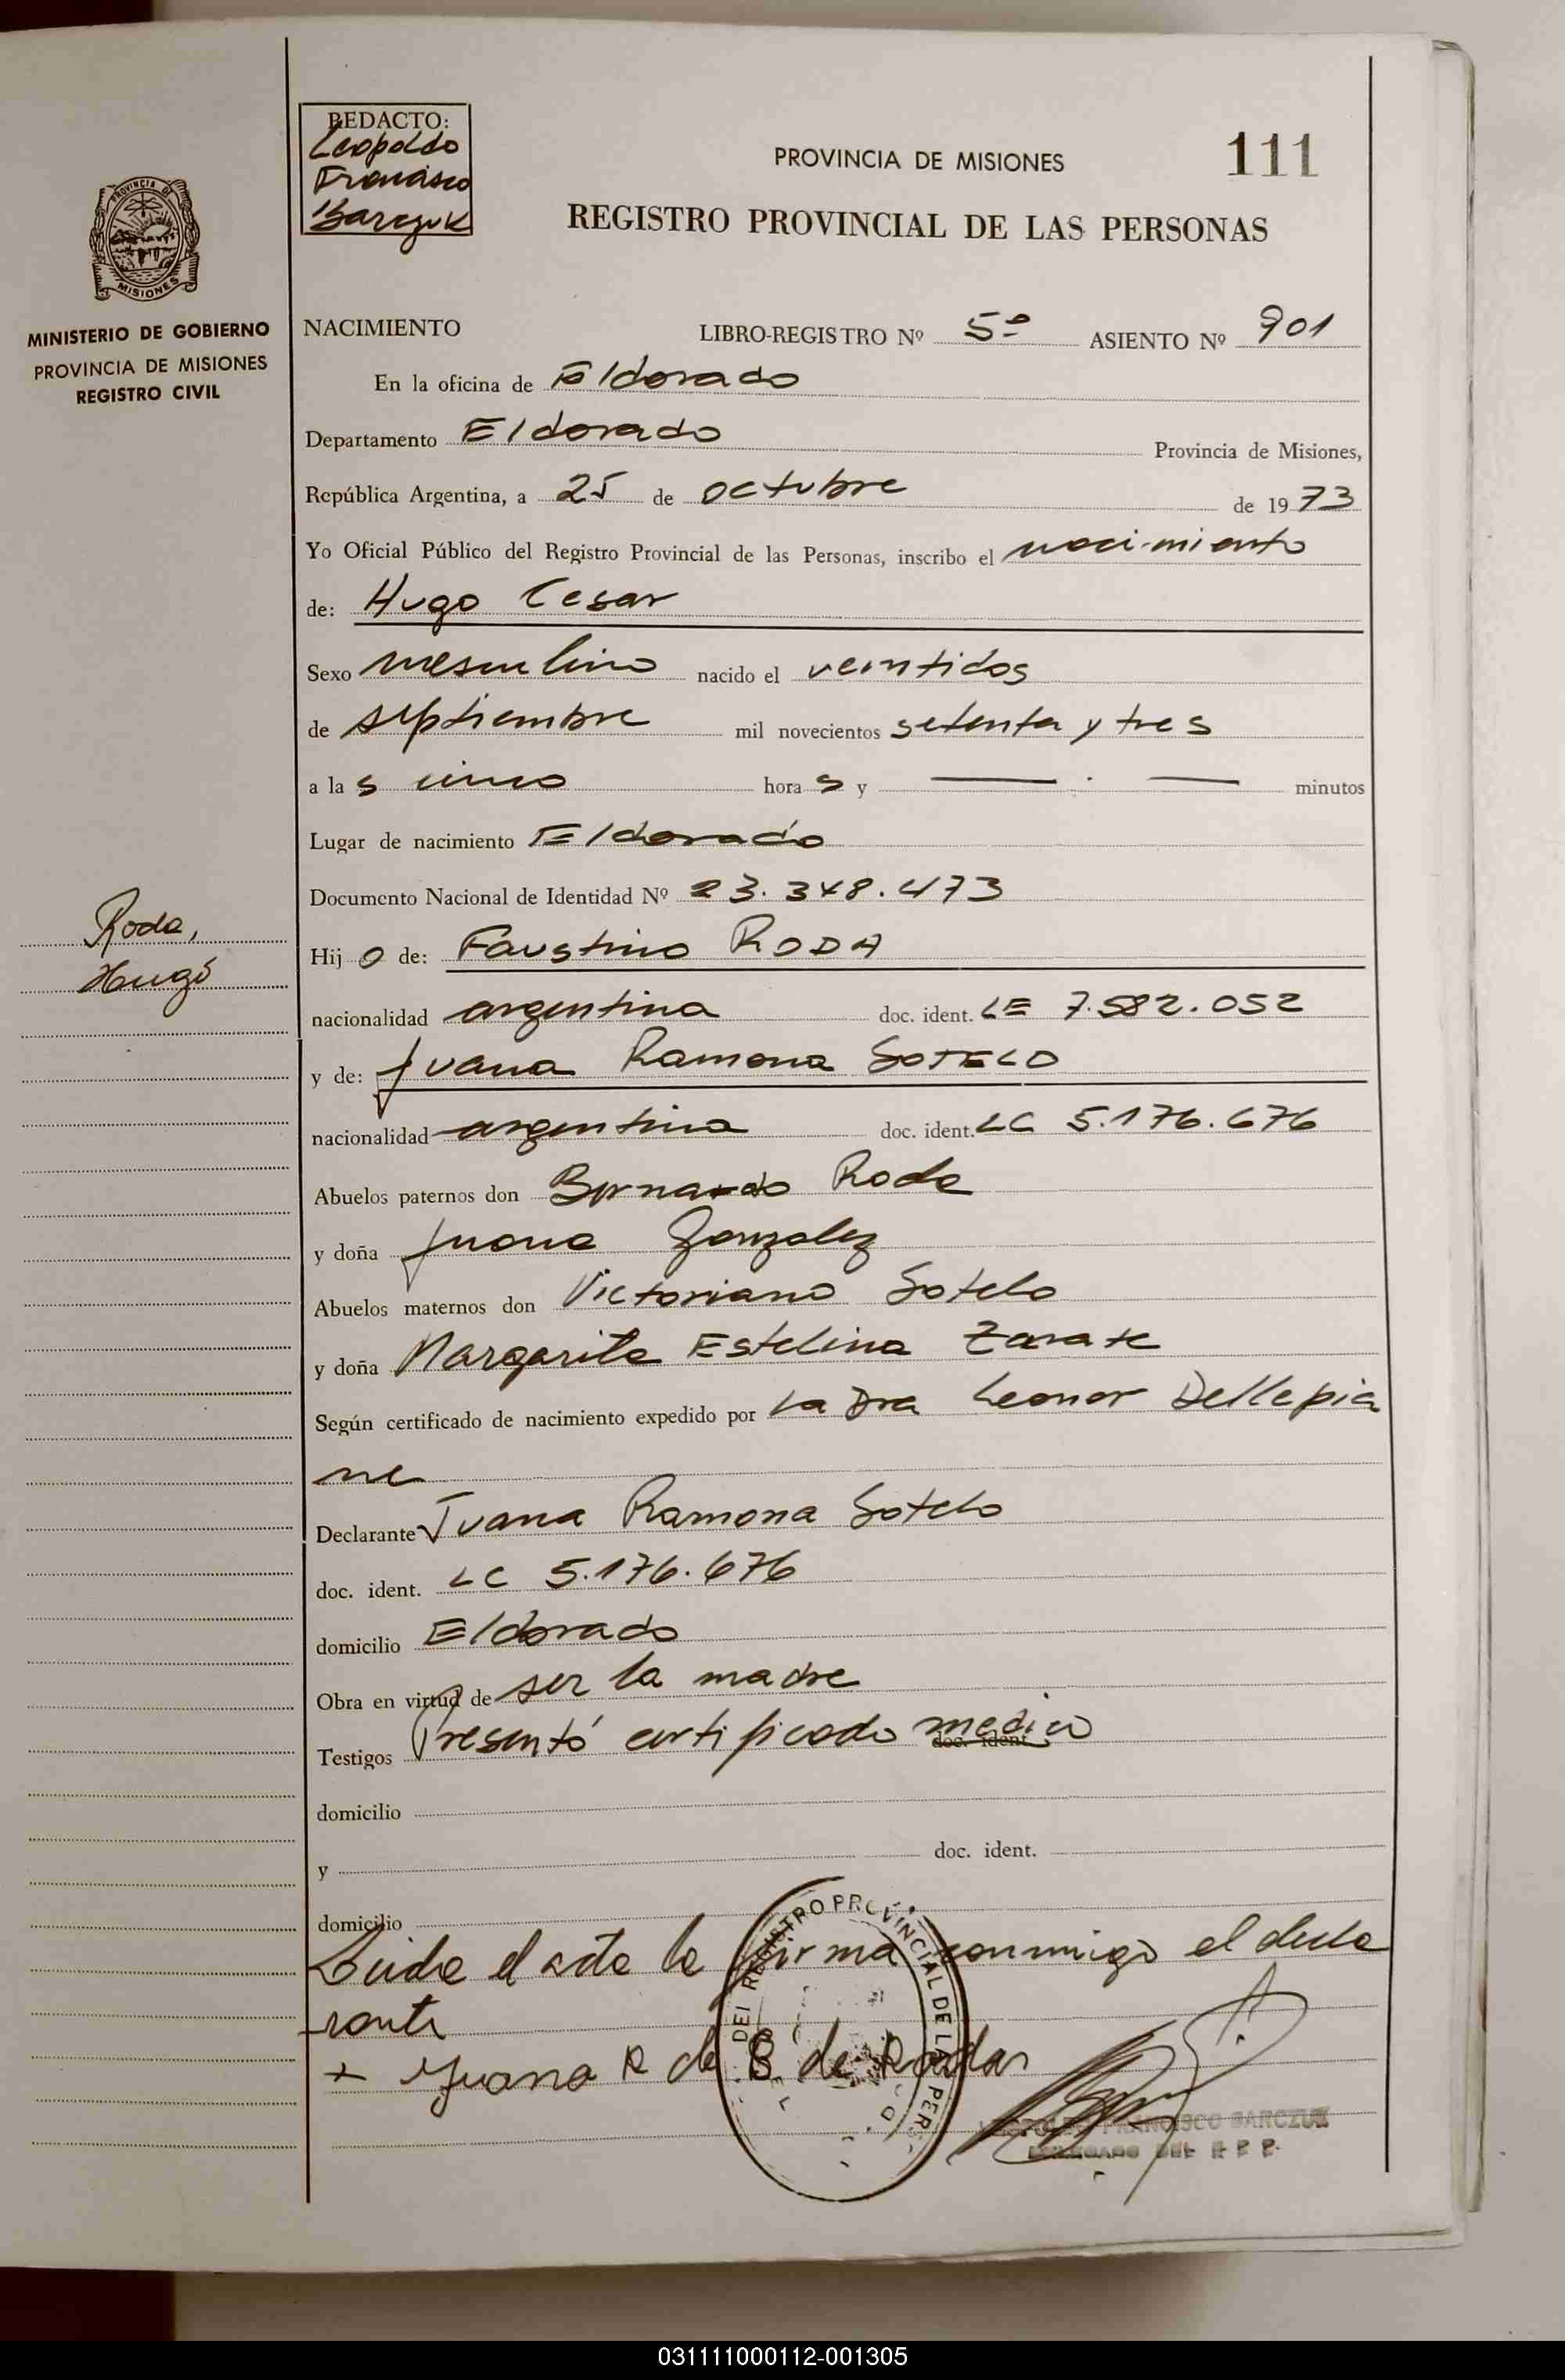 REDACTO:
Leopoldo
Francisco
Barczuk
PROVINCIA DE MISIONES
111
REGISTRO PROVINCIAL DE LAS PERSONAS
PROVINCIA DE
MISIONES
MINISTERIO DE GOBIERNO
PROVINCIA DE MISIONES
REGISTRO CIVIL
NACIMIENTO LIBRO-REGISTRO Nº 5º ASIENTO Nº 901
En la oficina de Eldorado
Departamento Eldorado Provincia de Misiones,
República Argentina, a 25 de octubre de 1973
Yo Oficial Público del Registro Provincial de las Personas, inscribo el nacimiento
de: Hugo Cesar
Sexo masculino nacido el veintidos
de septiembre mil novecientos setenta y tres
a las cinco horas y — . — minutos
Lugar de nacimiento Eldorado
Documento Nacional de Identidad Nº 23.348.473
Roda,
Hugo
Hijo de: Faustino RODA
nacionalidad argentina doc. ident. LE 7.582.052
y de: Juana Ramona SOTELO
nacionalidad argentina doc. ident. LC 5.176.676
Abuelos paternos don Bernardo Roda
y doña Juana Gonzalez
Abuelos maternos don Victoriano Sotelo
y doña Margarita Estelina Zarate
Según certificado de nacimiento expedido por La Dra Leonor Dellepia
ne
Declarante Juana Ramona Sotelo
doc. ident. LC 5.176.676
domicilio Eldorado
Obra en virtud de ser la madre
Testigos Presentó certificado medico doc. ident.
domicilio
y doc. ident.
domicilio
Leida el acta la firma conmigo el decla
rante
+ Juana R de de Rodas
DEL REGISTRO PROVINCIAL DE LAS PERS
LEOPOLDO FRANCISCO BARCZUK
DELEGADO DEL R P P.
031111000112-001305